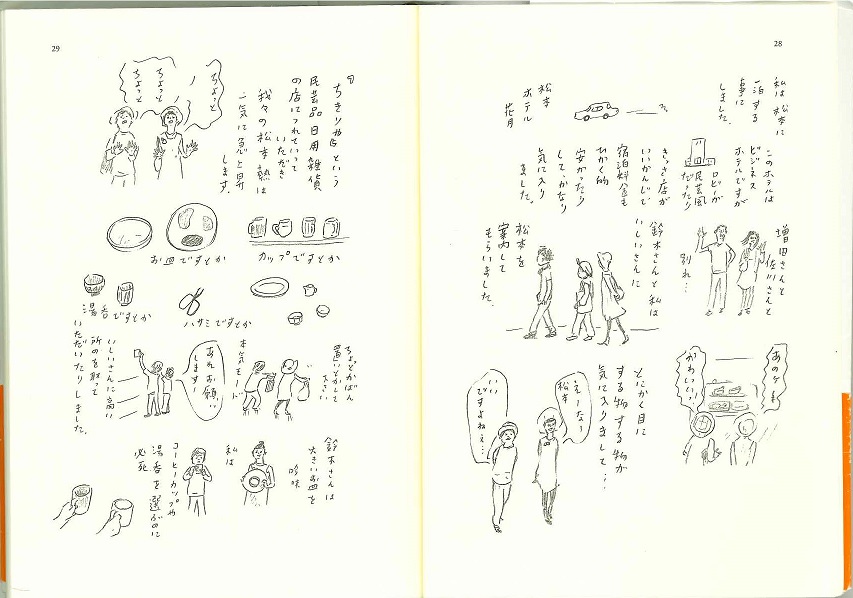 28
私は松本に
一泊する
事に
しました。
松本
ホテル
花月
このホテルは
ビジネス
ホテルですが
ロビーが
民芸風
だったり
きっさ店が
いいかんじで
宿泊料金も
ひかく的
安かったり
して、かなり
気に入り
ました。
増田さんと
佐川さんと
別れ…
鈴木さんと私は
いしいさんに
松本を
案内して
もらいました。
あのケーキ
かわいい!!
とにかく目に
する物する物が
気に入りまして…
えーなー
松本
いい
ですよねぇ…
29
『ちきりや』という
民芸品日用雑貨
の店につれていって
いただき
我々の松本熱は
一気に急上昇
します。
ちょっと
ちょっと
ちょっと
カップですとか
お皿ですとか
湯呑ですとか
ハサミですとか
ちょっとかばん
置いとかして
下さい
本気モード
あれお願い
します!
いしいさんに高い
所のを取って
いただいたりしました。
鈴木さんは
大きいお皿を
吟味
私は
コーヒーカップや
湯呑を選ぶのに
必死